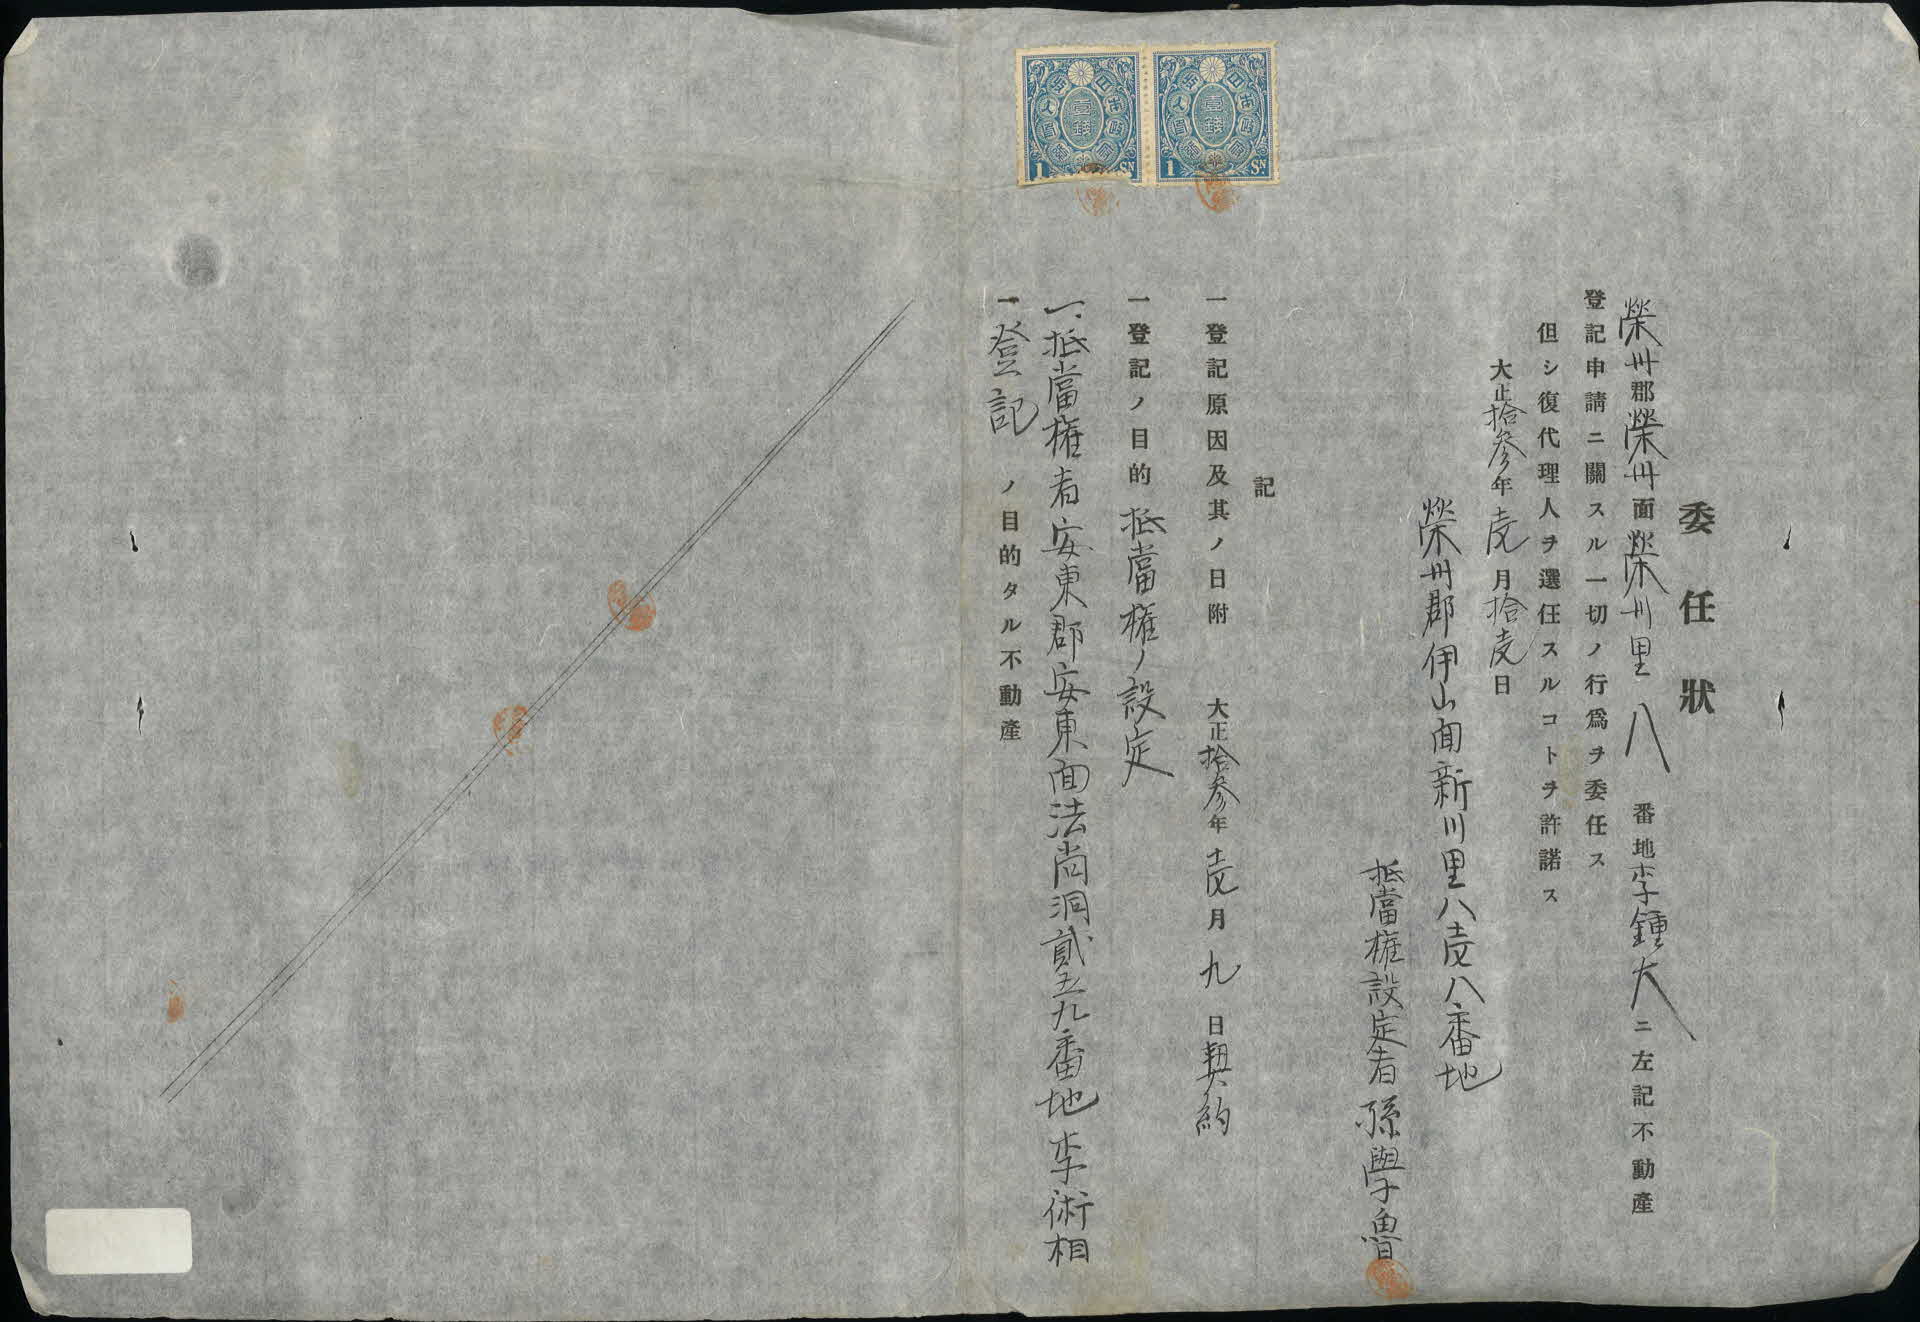 委任狀
榮州郡榮州面榮州里八番地李鍾大ニ左記不動産
登記申請ニ關スル一切ノ行爲ヲ委任ス
但シ復代理人ヲ選任スルコトヲ許諾ス
大正拾參年壱月拾壱日
榮州郡伊山面新川里八壱八番地
抵當權設定者 孫學魯
記
一登記原因及其ノ日附 大正拾參年壱月九日契約
一登記ノ目的 抵當權ノ設定
一、抵當權者安東郡安東面法尚洞貳五九番地 李術相
一、登記ノ目的タル不動産
1 SN.
1 SN